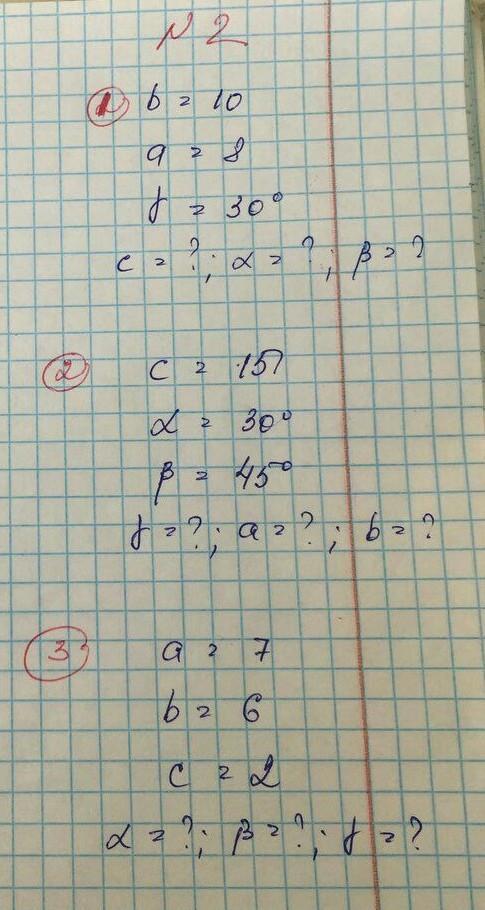 N2
1 b = 10
a = 8
γ = 30°
c = ?; α = ?; β = ?
2 c = 15
α = 30°
β = 45°
γ = ?; a = ?; b = ?
3 a = 7
b = 6
c = 2
α = ?; β = ?; γ = ?